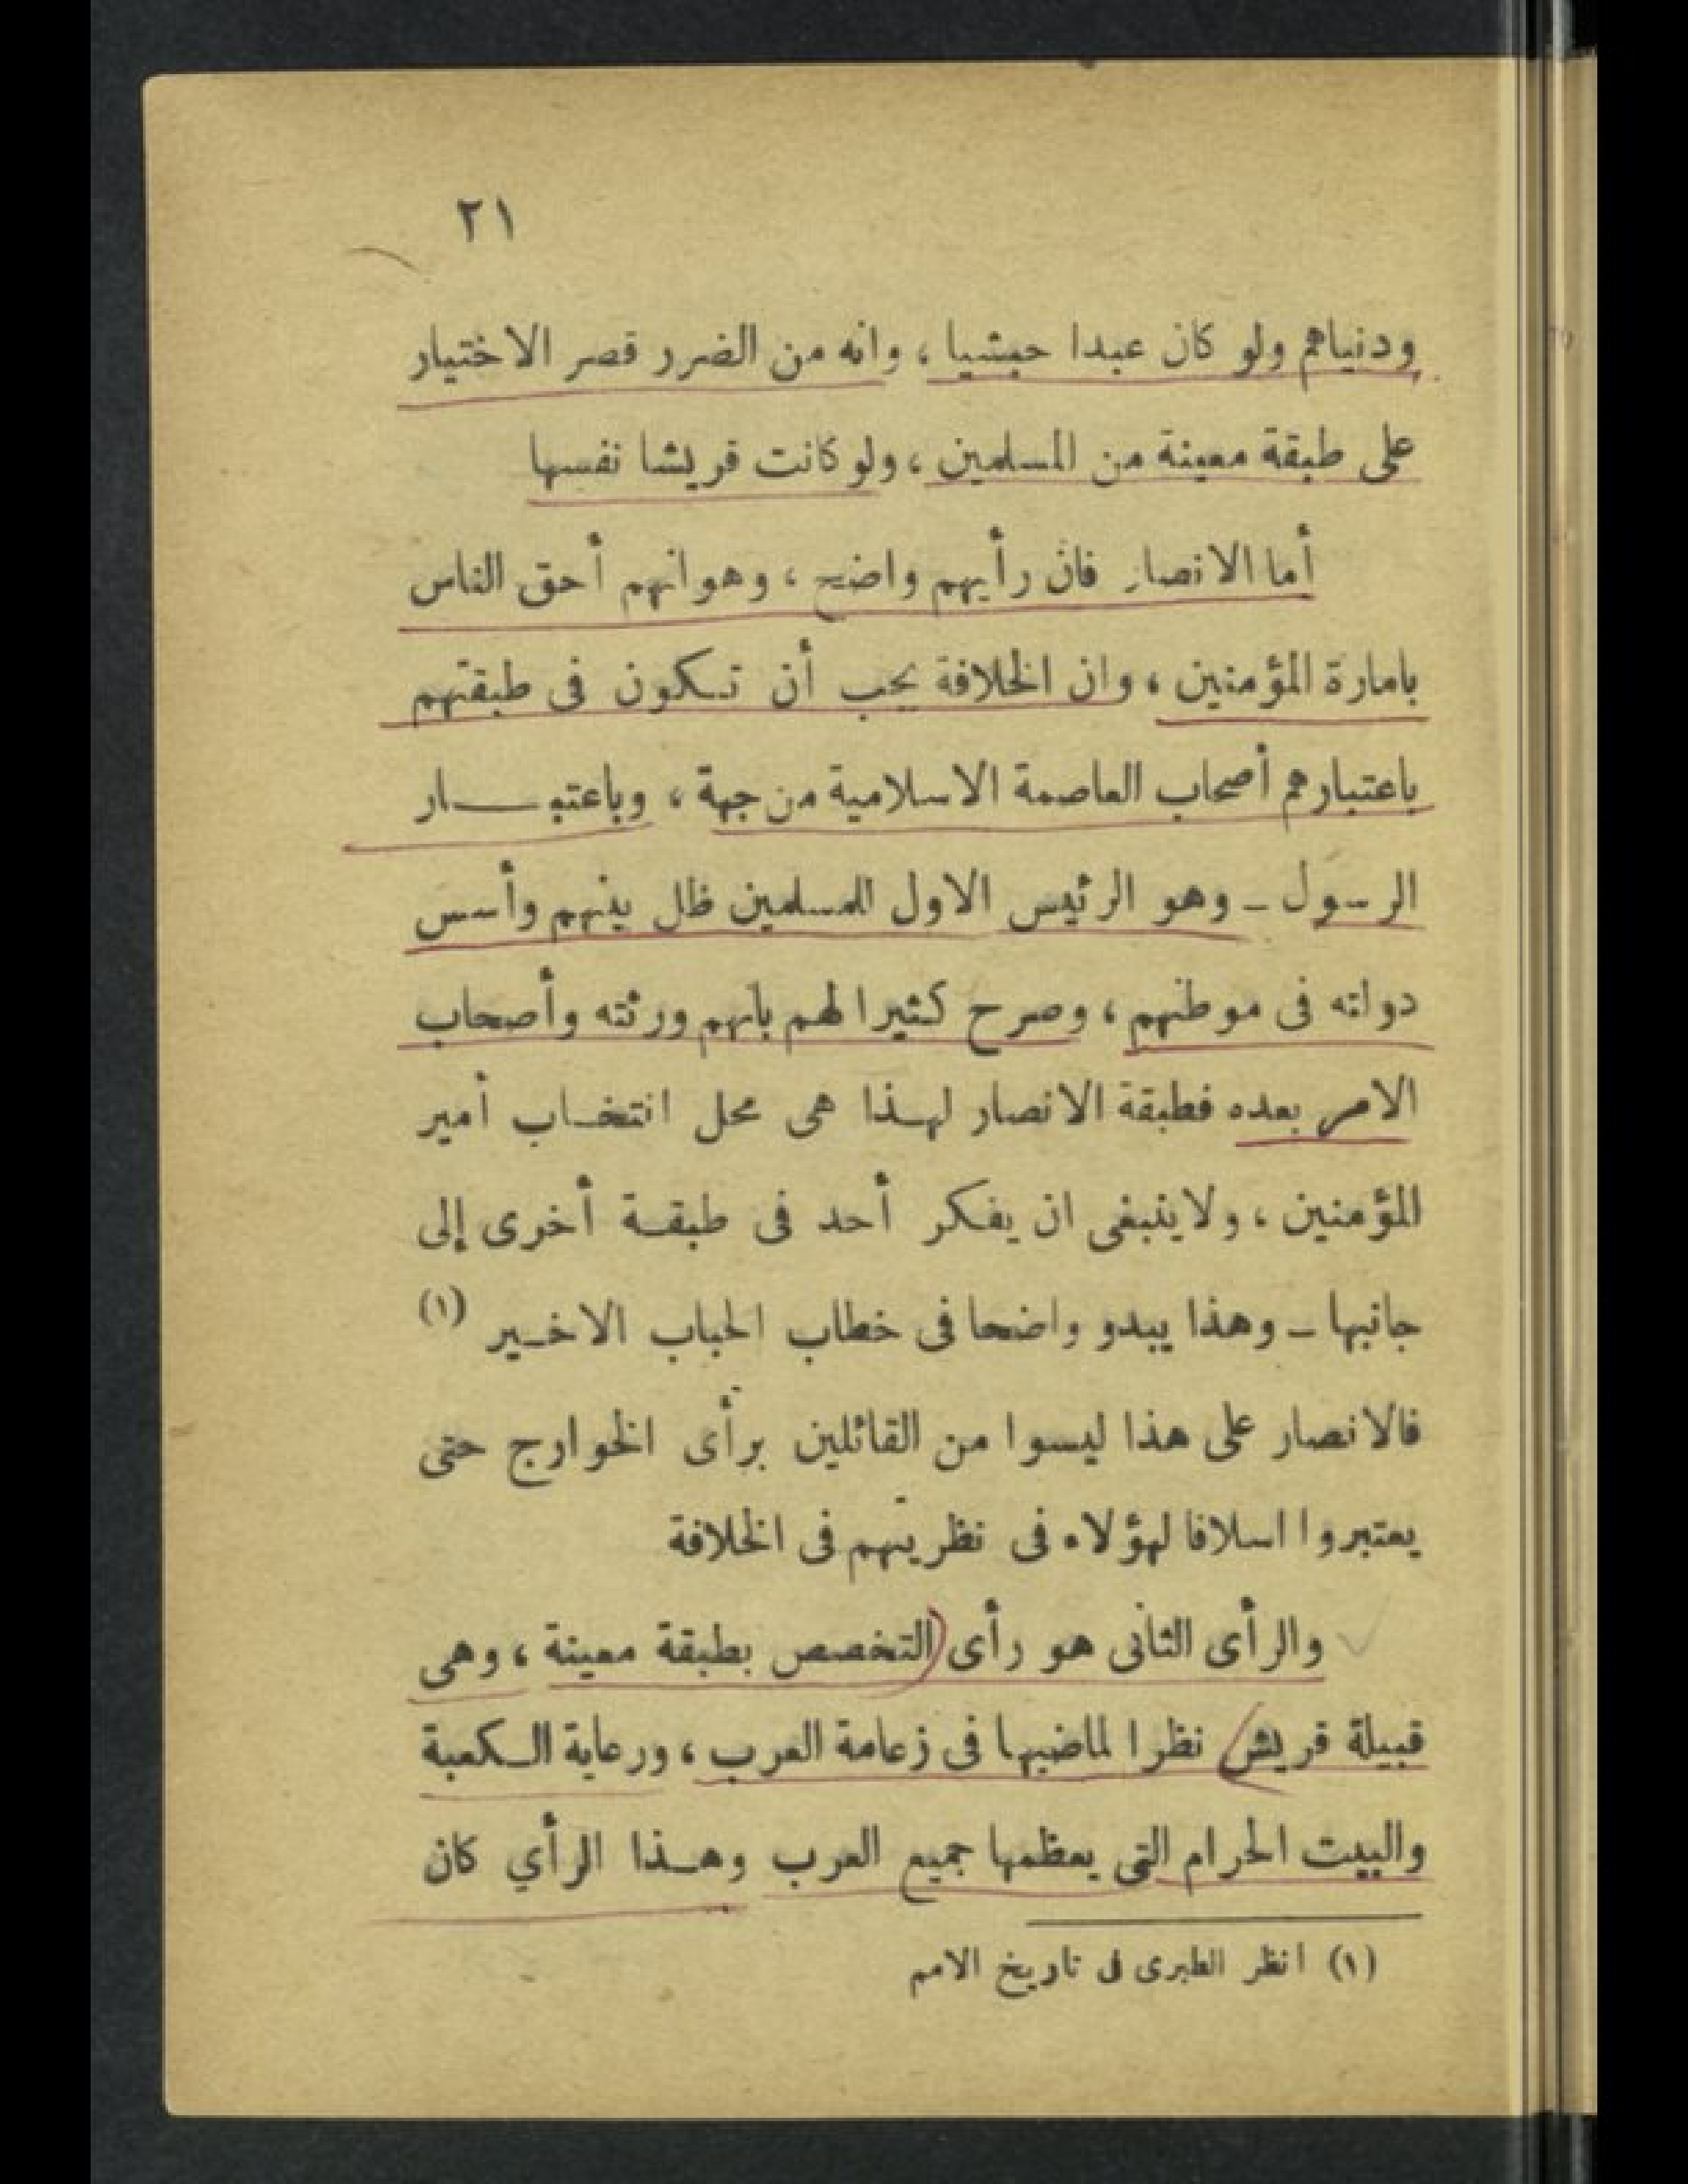 ٢١
ودنياهم ولو كان عبدا حبشيا ، وانه من الضرر قصر الاختيار
على طبقة معينة من المسلمين ، ولو كانت قريشا نفسها
أما الانصار فان رأيهم واضح ، وهو انهم أحق الناس
بامارة المؤمنين ، وان الخلافة يجب أن تكون فى طبقتهم
باعتبارهم أصحاب العاصمة الاسلامية من جهة ، وباعتبار
الرسول ـ وهو الرئيس الاول للمسلمين ظل بينهم وأسس
دولته فى موطنهم ، وصرح كثيرا لهم بانهم ورثته وأصحاب
الامر بعده فطبقة الانصار لهذا هى محل انتخاب أمير
المؤمنين ، ولا ينبغى ان يفكر أحد فى طبقة أخرى إلى
جانبها ـ وهذا يبدو واضحا فى خطاب الحباب الاخير (١)
فالانصار على هذا ليسوا من القائلين برأى الخوارج حتى
يعتبروا اسلافا لهؤلاء فى نظريتهم فى الخلافة
والرأى الثانى هو رأى (التخصص بطبقة معينة ، وهى
قبيلة قريش) نظرا لماضيها فى زعامة العرب ، ورعاية الكعبة
والبيت الحرام التى يعظمها جميع العرب وهذا الرأي كان
(١) انظر الطبرى فى تاريخ الامم